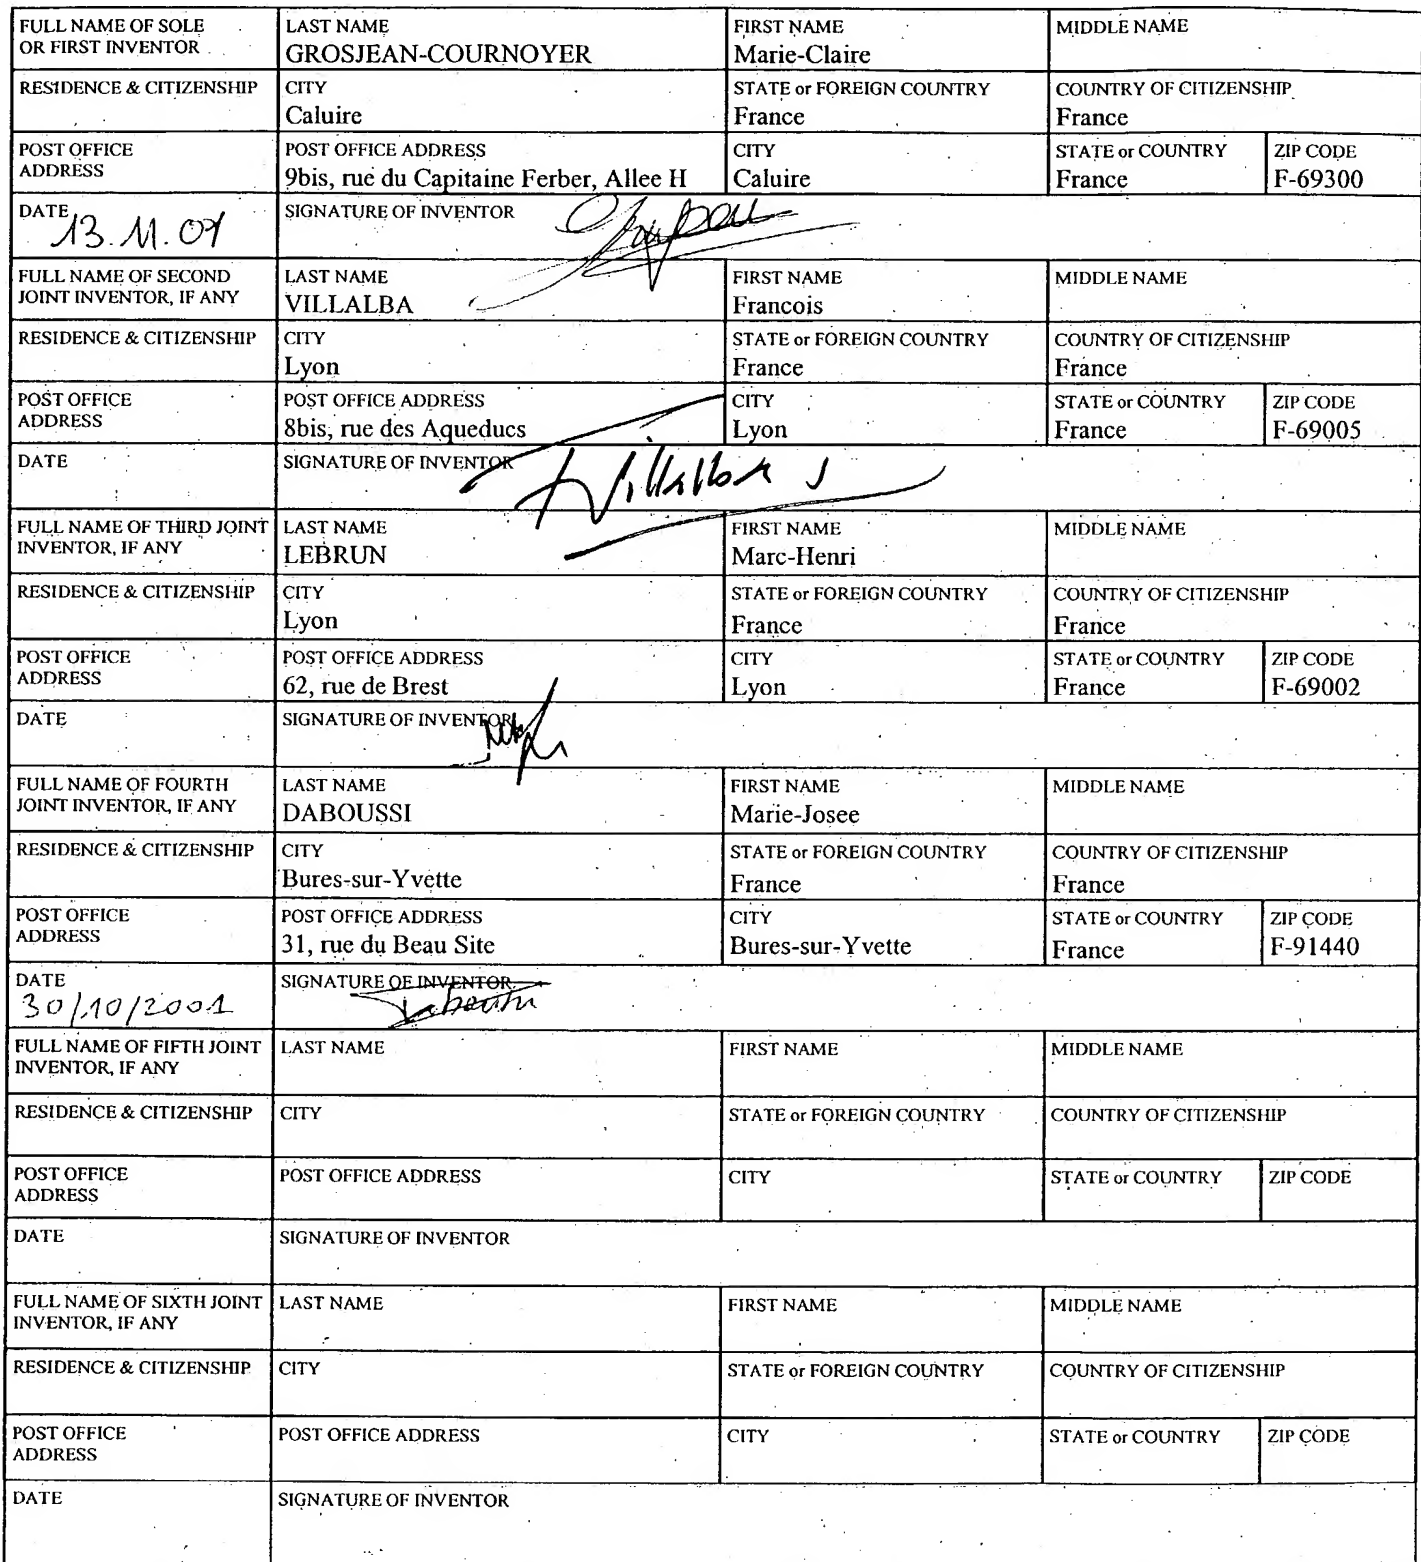 FULL NAME OF SOLE OR FIRST INVENTOR
LAST NAME
GROSJEAN-COURNOYER
FIRST NAME
Marie-Claire
MIDDLE NAME
RESIDENCE & CITIZENSHIP
CITY
Caluire
STATE or FOREIGN COUNTRY
France
COUNTRY OF CITIZENSHIP
France
POST OFFICE ADDRESS
POST OFFICE ADDRESS
9bis, rue du Capitaine Ferber, Allee H
CITY
Caluire
STATE or COUNTRY
France
ZIP CODE
F-69300
DATE
13.11.01
SIGNATURE OF INVENTOR
FULL NAME OF SECOND JOINT INVENTOR, IF ANY
LAST NAME
VILLALBA
FIRST NAME
Francois
MIDDLE NAME
RESIDENCE & CITIZENSHIP
CITY
Lyon
STATE or FOREIGN COUNTRY
France
COUNTRY OF CITIZENSHIP
France
POST OFFICE ADDRESS
POST OFFICE ADDRESS
8bis, rue des Aqueducs
CITY
Lyon
STATE or COUNTRY
France
ZIP CODE
F-69005
DATE
SIGNATURE OF INVENTOR
FULL NAME OF THIRD JOINT INVENTOR, IF ANY
LAST NAME
LEBRUN
FIRST NAME
Marc-Henri
MIDDLE NAME
RESIDENCE & CITIZENSHIP
CITY
Lyon
STATE or FOREIGN COUNTRY
France
COUNTRY OF CITIZENSHIP
France
POST OFFICE ADDRESS
POST OFFICE ADDRESS
62, rue de Brest
CITY
Lyon
STATE or COUNTRY
France
ZIP CODE
F-69002
DATE
SIGNATURE OF INVENTOR
FULL NAME OF FOURTH JOINT INVENTOR, IF ANY
LAST NAME
DABOUSSI
FIRST NAME
Marie-Josee
MIDDLE NAME
RESIDENCE & CITIZENSHIP
CITY
Bures-sur-Yvette
STATE or FOREIGN COUNTRY
France
COUNTRY OF CITIZENSHIP
France
POST OFFICE ADDRESS
POST OFFICE ADDRESS
31, rue du Beau Site
CITY
Bures-sur-Yvette
STATE or COUNTRY
France
ZIP CODE
F-91440
DATE
30/10/2001
SIGNATURE OF INVENTOR
FULL NAME OF FIFTH JOINT INVENTOR, IF ANY
LAST NAME
FIRST NAME
MIDDLE NAME
RESIDENCE & CITIZENSHIP
CITY
STATE or FOREIGN COUNTRY
COUNTRY OF CITIZENSHIP
POST OFFICE ADDRESS
POST OFFICE ADDRESS
CITY
STATE or COUNTRY
ZIP CODE
DATE
SIGNATURE OF INVENTOR
FULL NAME OF SIXTH JOINT INVENTOR, IF ANY
LAST NAME
FIRST NAME
MIDDLE NAME
RESIDENCE & CITIZENSHIP
CITY
STATE or FOREIGN COUNTRY
COUNTRY OF CITIZENSHIP
POST OFFICE ADDRESS
POST OFFICE ADDRESS
CITY
STATE or COUNTRY
ZIP CODE
DATE
SIGNATURE OF INVENTOR